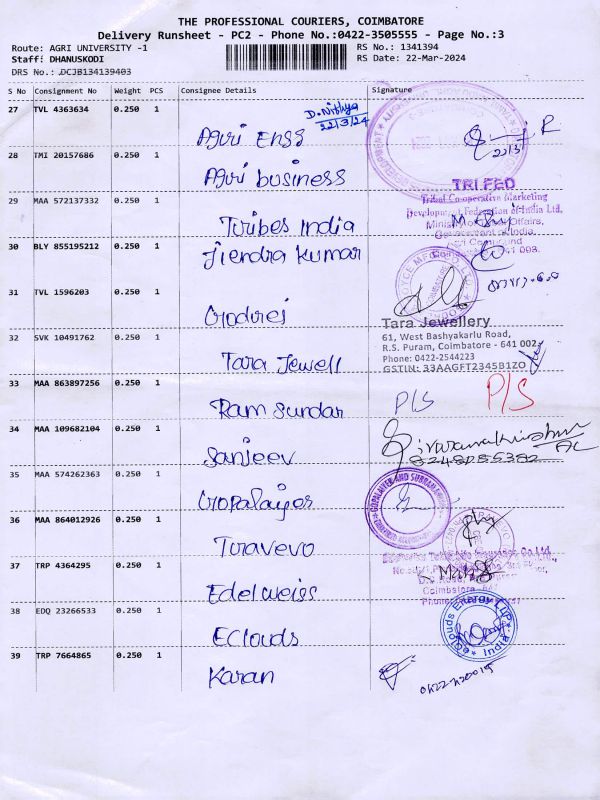 THE PROFESSIONAL COURIERS, COIMBATORE
Delivery Runsheet - PC2 - Phone No.:0422-3505555 - Page No.:3
Route: AGRI UNIVERSITY -1
RS No.: 1341394
Staff: DHANUSKODI
RS Date: 22-Mar-2024
DRS No.: DCJB134139403
S No Consignment No Weight PCS Consignee Details Signature
27 TVL 4363634 0.250 1
D. Nithya
22/3/24
Agri Engg
28 TMI 20157686 0.250 1
Agri business
TRI FED
Tribal Co-operative Marketing
Development Federation of India Ltd,
29 MAA 572137332 0.250 1
Tribes India
Government of India
30 BLY 855195212 0.250 1
Jiendra kumar
31 TVL 1596203 0.250 1
Godrej
Tara Jewellery
61, West Bashyakarlu Road,
R.S. Puram, Coimbatore - 641 002.
Phone: 0422-2544223
GSTIN: 33AAGFT2345B1ZO
32 SVK 10491762 0.250 1
Tara Jewell
33 MAA 863897256 0.250 1
Ram Sundar
P/S P/S
34 MAA 109682104 0.250 1
Sanjeev
8248085382
35 MAA 574262363 0.250 1
Gopalaiyer
36 MAA 864012926 0.250 1
Turavevo
37 TRP 4364295 0.250 1
Edelweiss
Coimbatore
38 EDQ 23266533 0.250 1
EClouds
eClouds Energy LLP
India
39 TRP 7664865 0.250 1
Karan